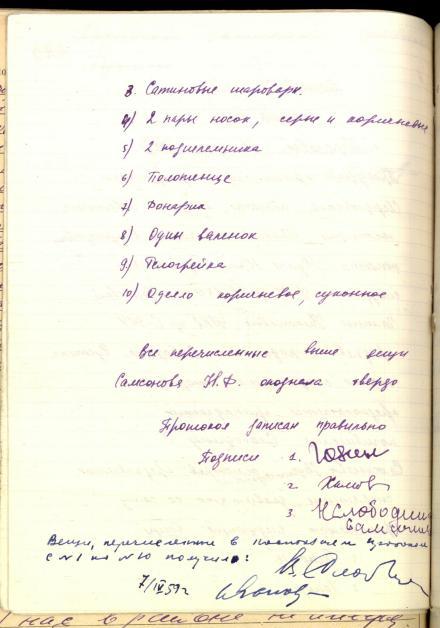 3. Сатиновые шаровары.
4) 2 пары носок, серые и коричневые
5) 2 подшлемника
6) Полотенце
7) Фонарик
8) Один валенок
9) Телогрейка
10) Одеяло коричневое, суконное
Все перечисленные выше вещи
опознала твердо
Протокол записан правильно
Подписи 1.
2.
3. Н Слободина
Вещи, перечисленные в
с №1 по №10 получил:
7/IV 59 г
нас в районе